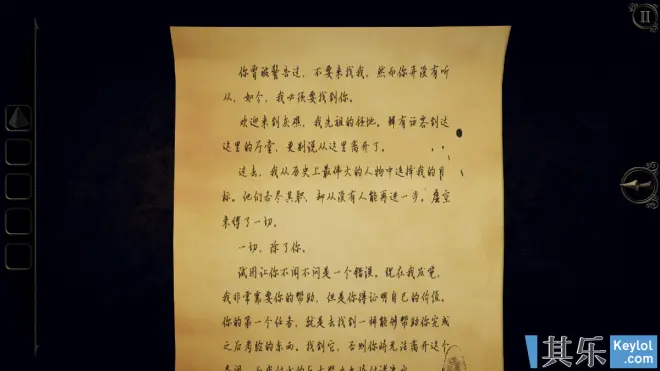 II
你曾被警告过，不要来找我，然而你并没有听
从，如今，我必须要找到你。
欢迎来到灰雁，我先祖的领地。鲜有访客到达
这里的厅堂，更别说从这里离开了。
过去，我从历史上最伟大的人物中选择我的目
标。他们各尽其职，却从没有人能再进一步。虚空
来得了一切。
一切，除了你。
试图让你不闻不问是一个错误。现在我发觉，
我非常需要你的帮助，但是你得证明自己的价值。
你的第一个任务，就是去找到一样能够帮助你完成
之后考验的东西。找到它，否则你将无法离开这个
其乐
Keylol.com